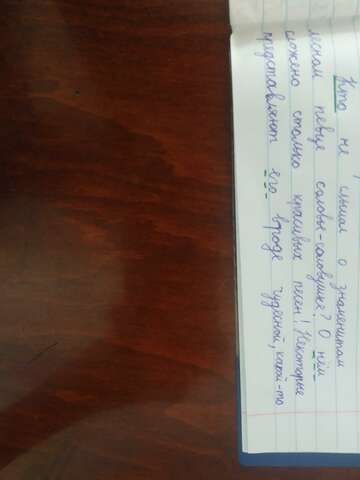 Кто не слышал о знаменитом
лесном певце соловье-соловушке? О нём
сложено столько красивых песен! Некоторые
представляют его вроде чудесной, какой-то